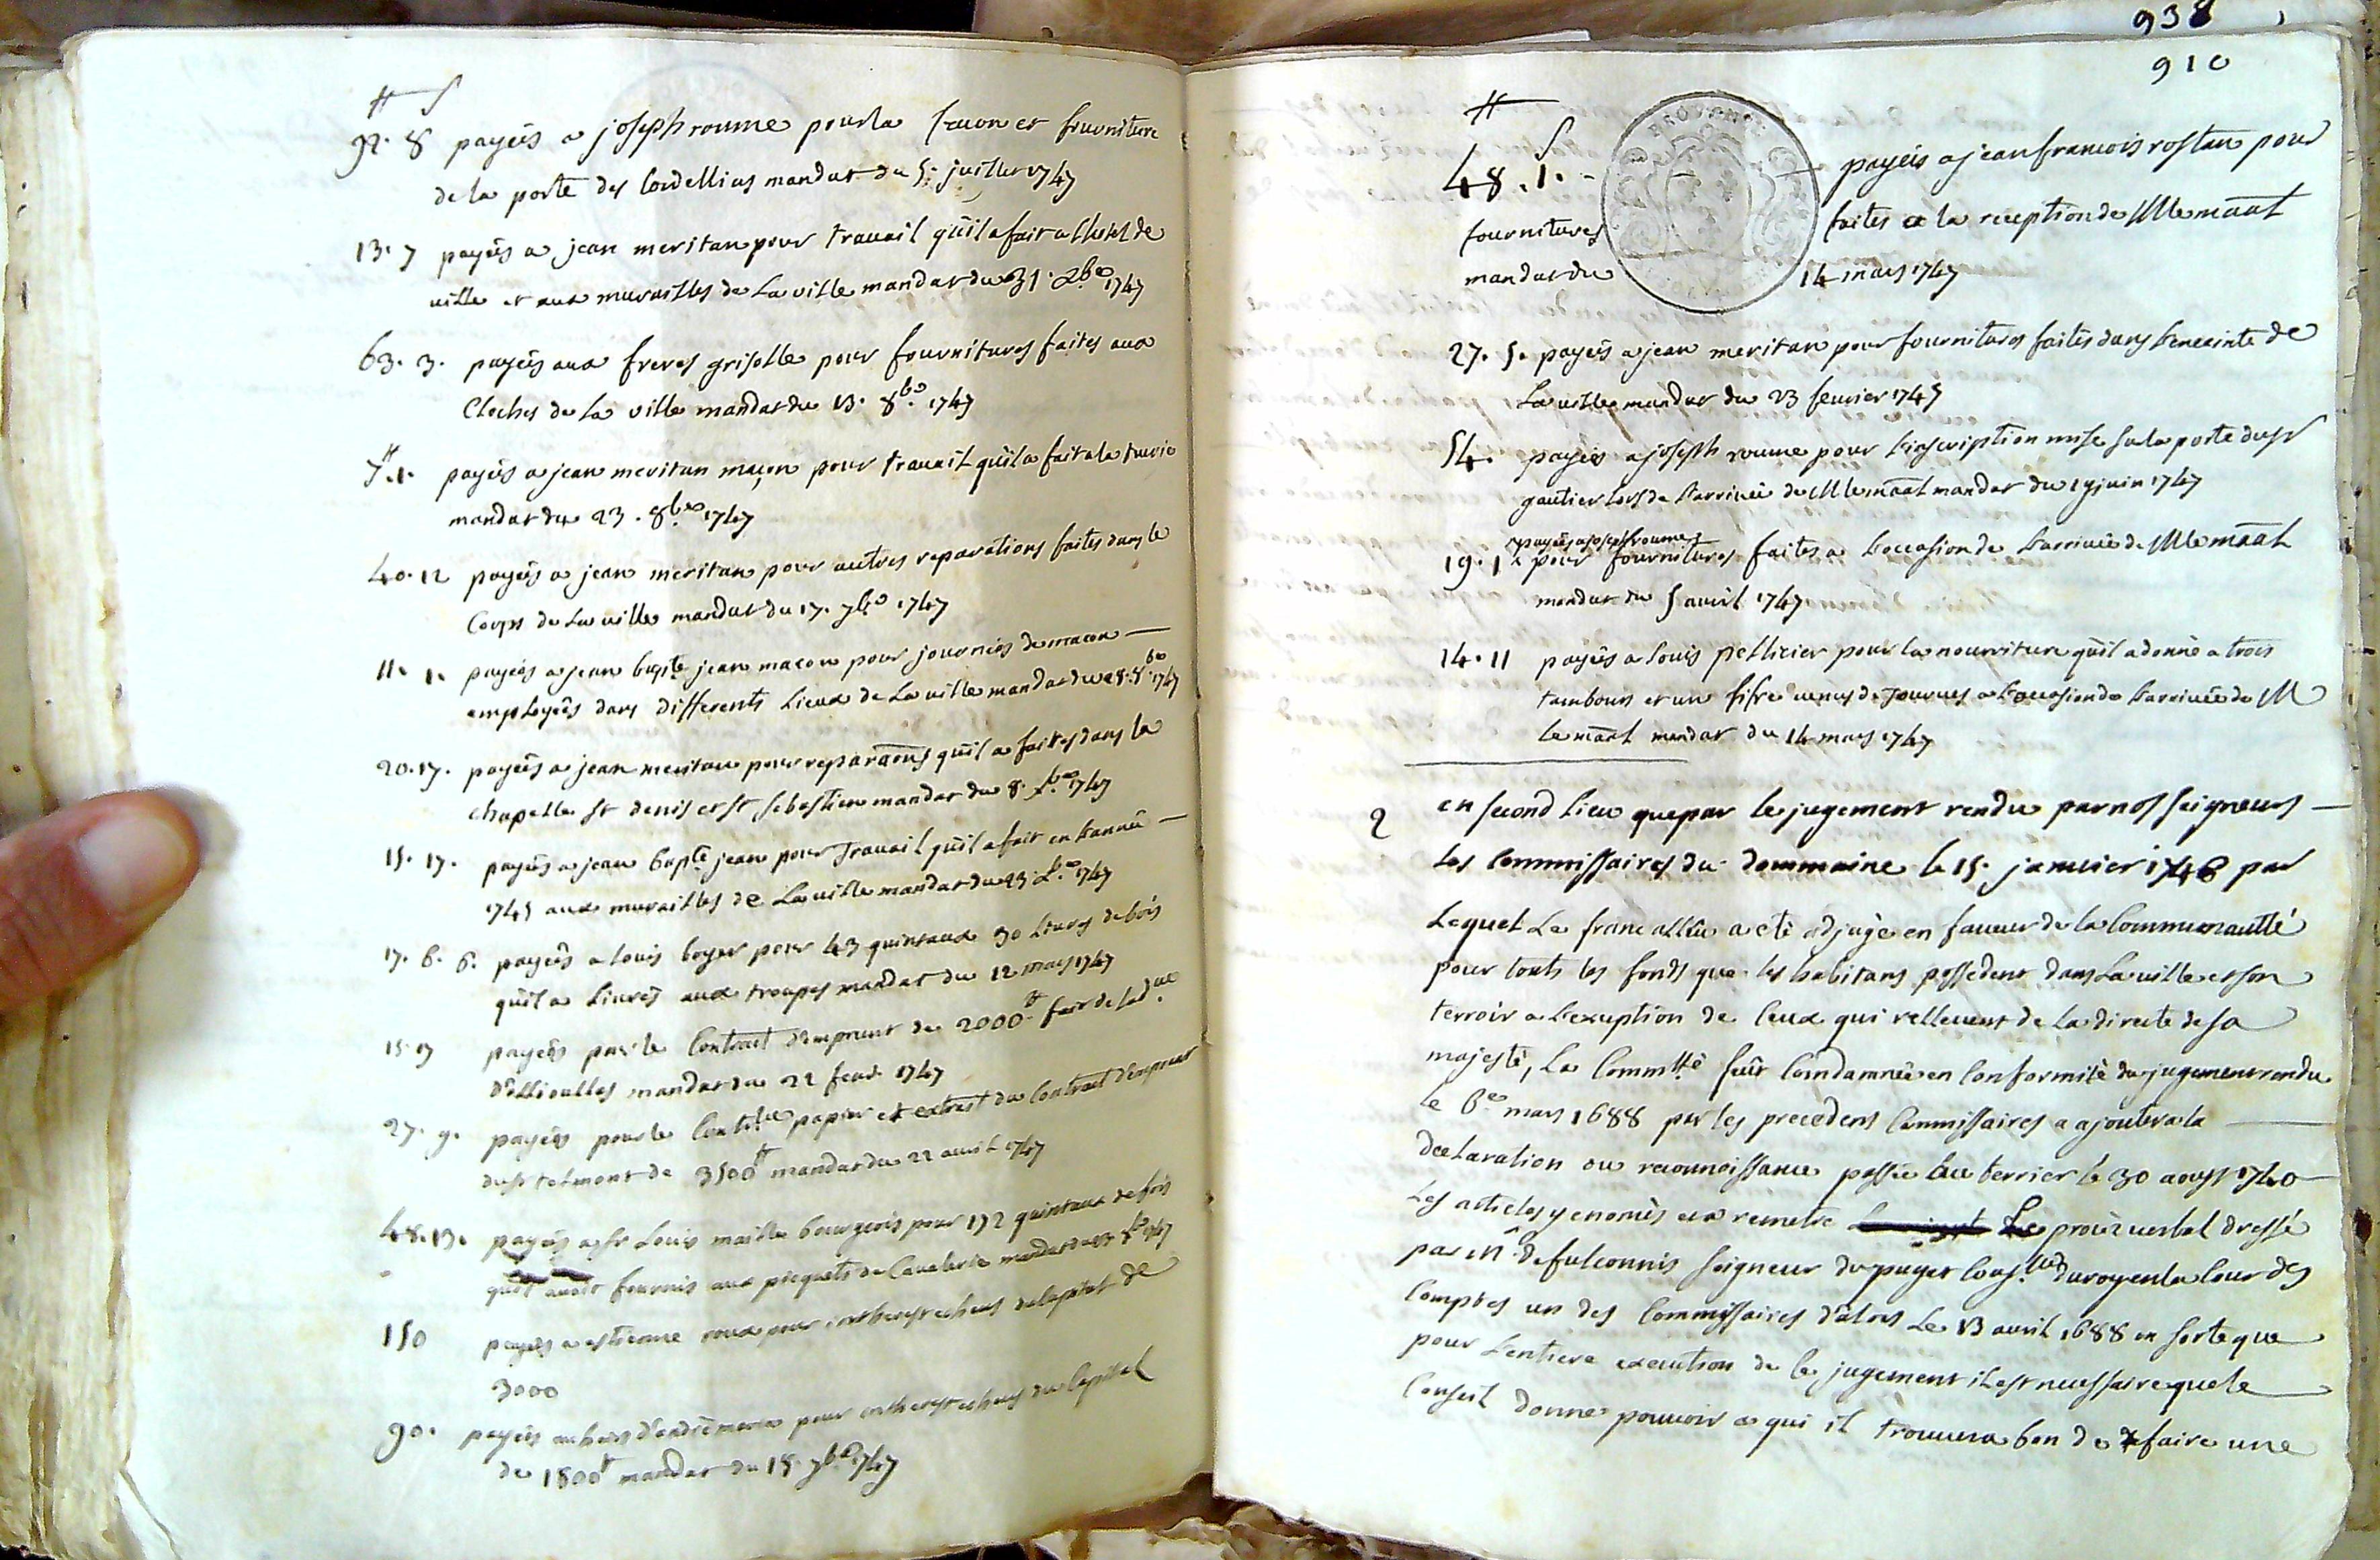 # s
92. 8 payés a joseph roume pour la facon et fourniture
de la porte des Cordelliers mandat du 5. juillet 1747
13. 7 payés a jean meritan pour travail quil a fait a lhotel de
ville et aux murailles de La ville mandat du 31. Xbre 1747
63. 3. payés aux freres griselle pour fournitures faites aux
Cloches de la ville mandat du 13. 8bre 1747
7. 1. payés a jean meritan maçon pour travail quil a fait a la
mandat du 23. 8bre 1747
40. 12 payés a jean meritan pour autres reparations faites dans le
Corps de La ville mandat du 17. 7bre 1747
11. 1. payés a jean bapte jean macon pour journées de macon —
employées dans differents Lieux de La ville mandat du 28. 8bre 1747
20. 17. payés a jean meritan pour reparaons quil a faites dans la
chapelle st denis et st sebastien mandat du 8. Xbre 1747
15. 17. payés a jean bapte jean pour Travail quil a fait en Lannée —
1745 aux murailles de La ville mandat du 23. Xbre 1747
17. 6. 6. payés a louis boyer pour 43 quintaux 30 Livres de bois
quil a Livrés aux troupes mandat du 12 mars 1747
15. 17 payés pour le Contract demprunt de 2000# fait de lad.ue
dollioulles mandat du 22 fevr 1747
27. 9. payés pour le papier et extrait du Contract demprunt
du sr telmont de 3500# mandat du 22 avril 1747
48. 13. payés a sr Louis maille bourgeois pour 172 quintaux de fois
quil avoit fournis aux picquets de Cavalerie mandat du 1747
150 payés a estienne roux pour intherest echeus du Capital de
3000
90. payés aux hoirs pour intherest echeus du Capital
de 1800# mandat du 18. 7bre 1747
938
910
#
s
48. 1. - PROVENCE — payéis a jean francois rostan pour
fournitures faites a la reception de M le maal
mandat du 14 mars 1747
27. 5. payés a jean meritan pour fournitures faites dans Lenceinte de
La ville mandat du 23 fevrier 1745
54. payés a joseph roume pour Linscription mise sur la porte du sr
gautier Lors de Larrivée de M le maal mandat du 19 juin 1747
payés a joseph roume
19. 1 pour fournitures faites a Loccasion de Larrivée de M le maal
mandat du 5 avril 1747
14. 11 payés a louis pellicier pour la nourriture quil a donné a trois
tambours et un fifre venus de Tourves a Loccasion de Larrivée de M
le maal mandat du 14 mars 1747
2 en second lieu que par le jugement rendu par nos seigneurs —
Les Commissaires du dommaine le 15. janvier 1748 par
Lequel Le franc alleu a eté adjugé en faveur de la Communautté
pour touts les fonds que les habitans possedent dans La ville et son
terroir a Lexception de Ceux qui rellevent de La directe de sa
majesté, La Commtté fut Condamnée en Conformité du jugement rendu
le 6e mars 1688 par les precedens Commissaires a ajouter a la —
declaration ou reconnoissance passée au terrier le 30 aoust 1740 —
Les articles y enomés et a remetre Le procès verbal dressé
par mr de fulconnis seigneur du puget Conser du roy en la Cour des
Comptes un des Commissaires d'alors Le 13 avril 1688 en sorte que
pour Lentiere execution de Ce jugement il est necessaire que le
Conseil donne pouvoir a qui il trouvera bon de faire une